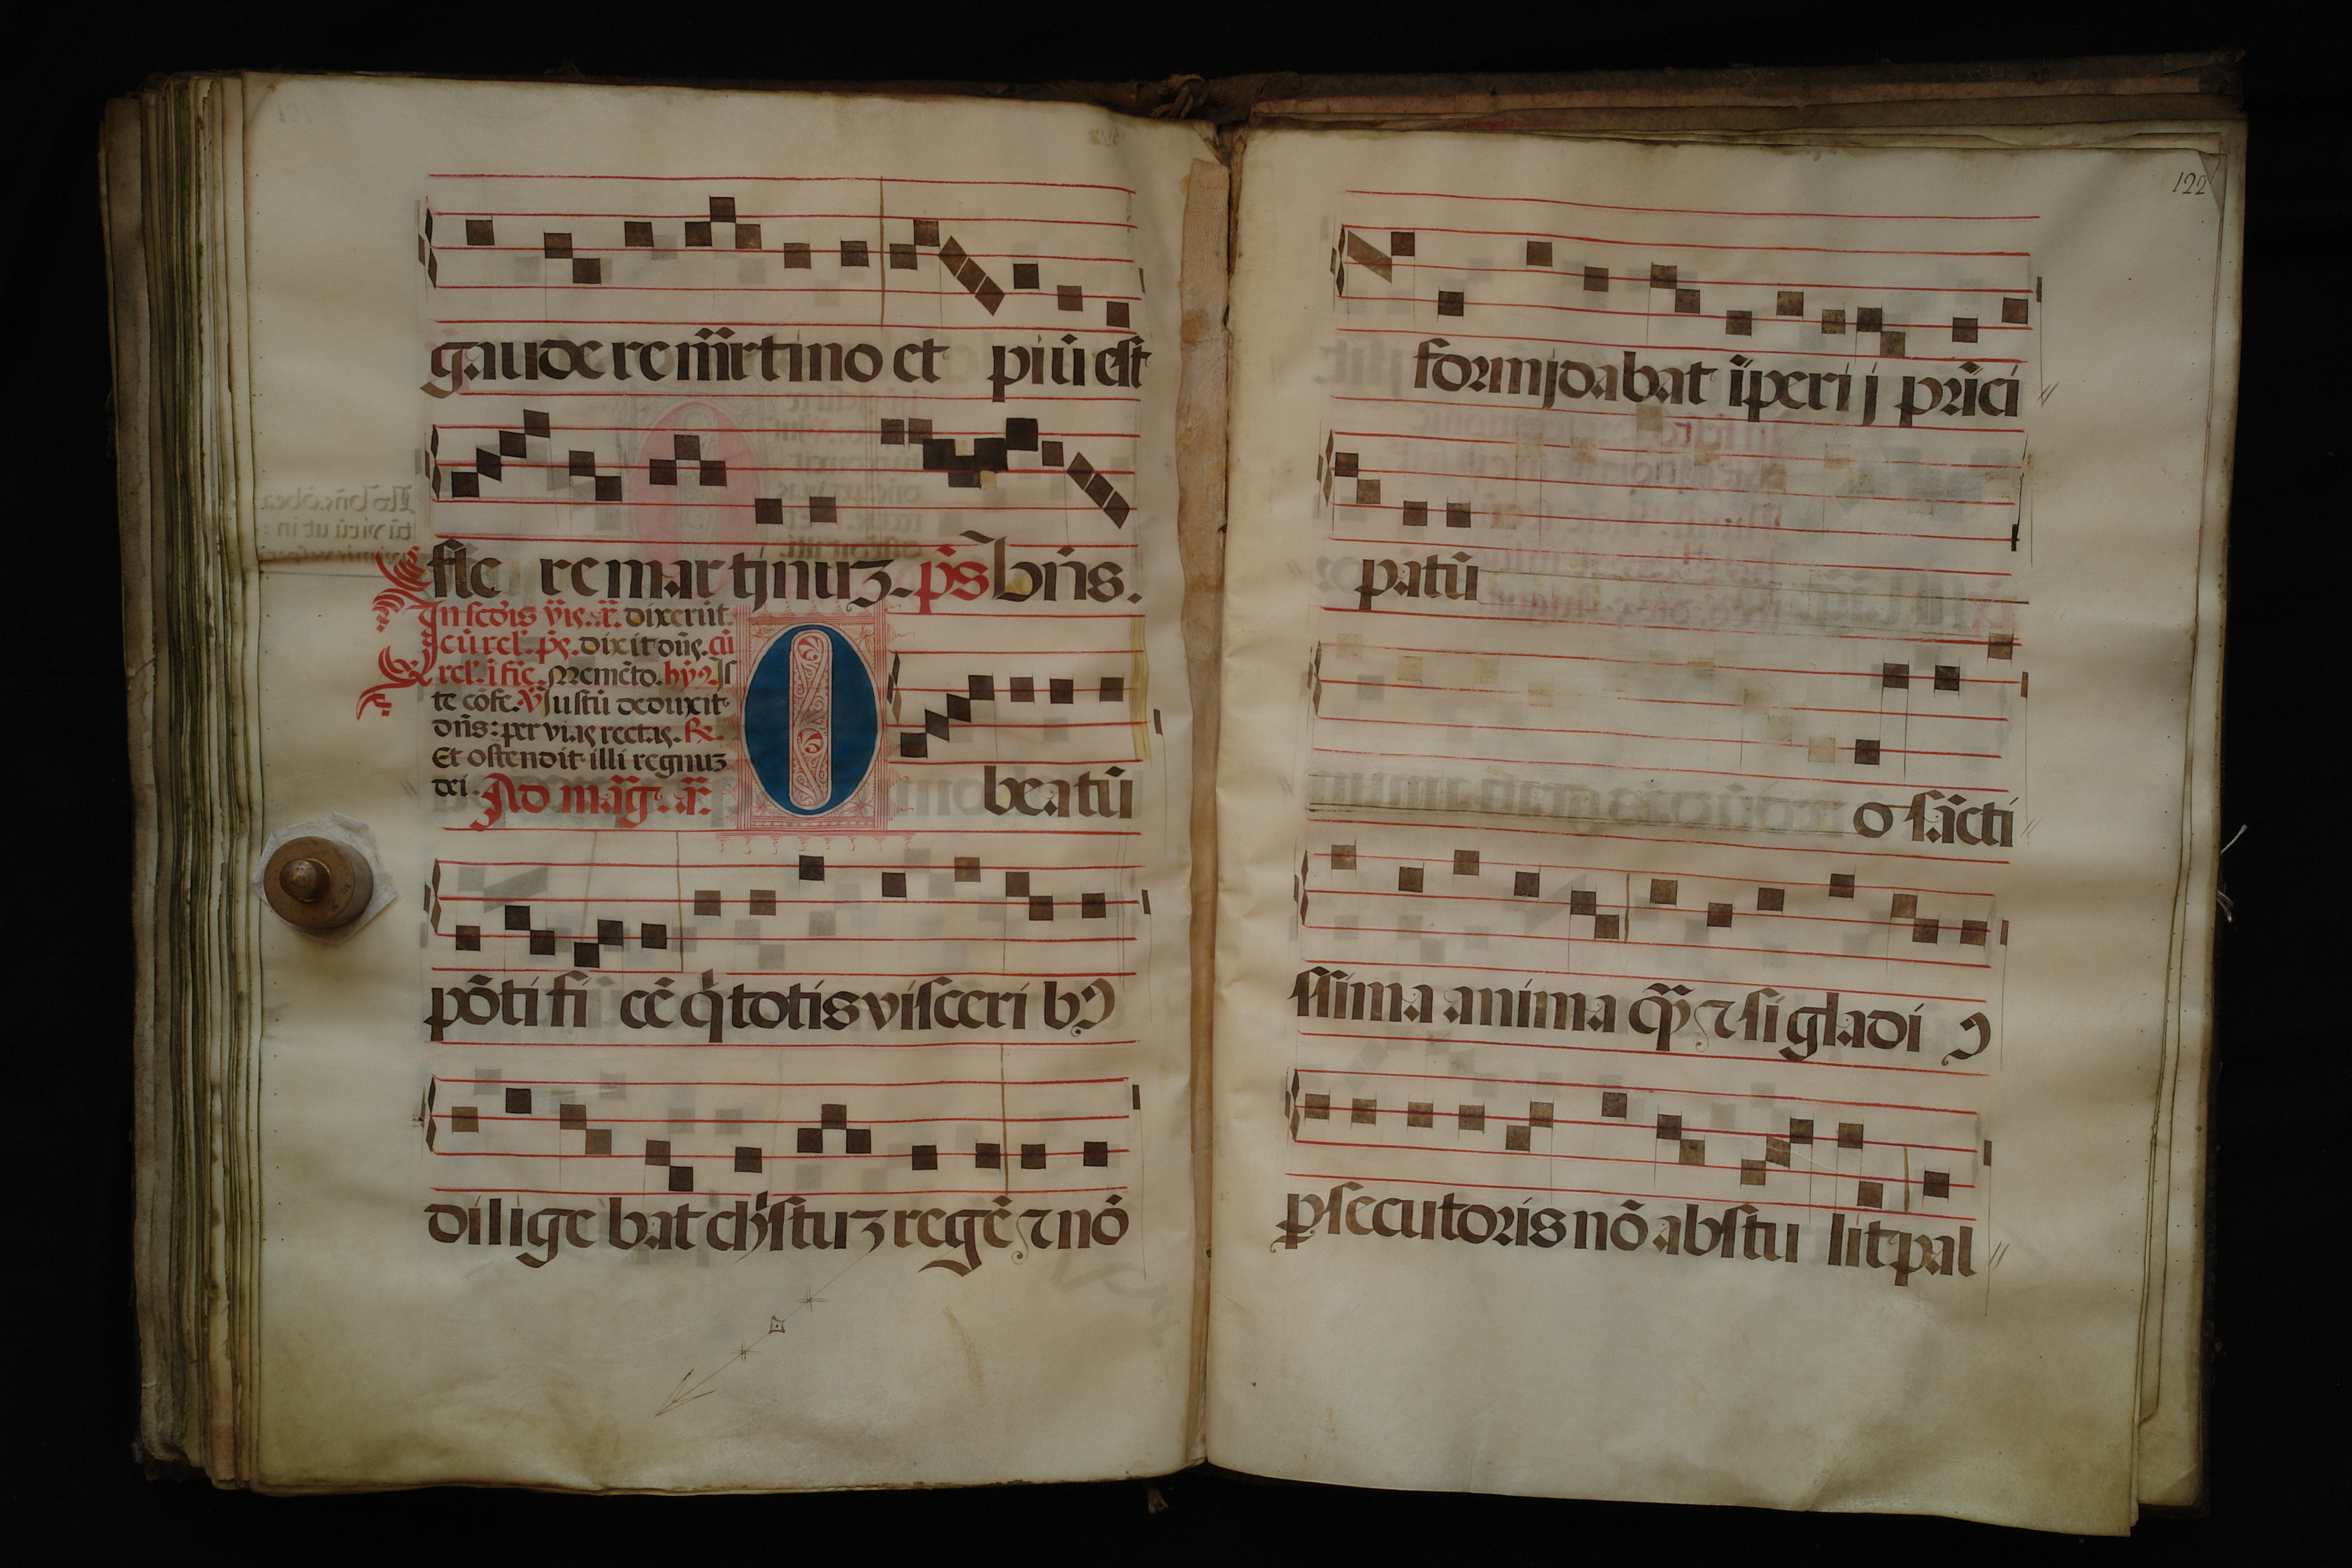 gaude re m̃rtino et piũ est
fle re mar tinuz. p̃s bñs.
In scd̃is ṽis. ã. dixerũt
cũ rel'. p̃s. dixit dñs. cũ
rel'. ĩ fiẽ. Memẽto. hỹ9 Is
te cõfe. ℣ Justũ deduxit
dñs: per vias rectas. ℟.
Et ostendit illi regnuz
dei. Ad mãg. ã.
O beatũ
põti fi cẽ q̃ totis visceri bꝰ
dilige bat ch̃istuz regẽ ⁊ nõ
122
formidabat ĩperij prĩci
patũ
o sãcti
ssima anima q̃ ⁊ si gladi ꝰ
ꝑsecutoris nõ abstu lit pal